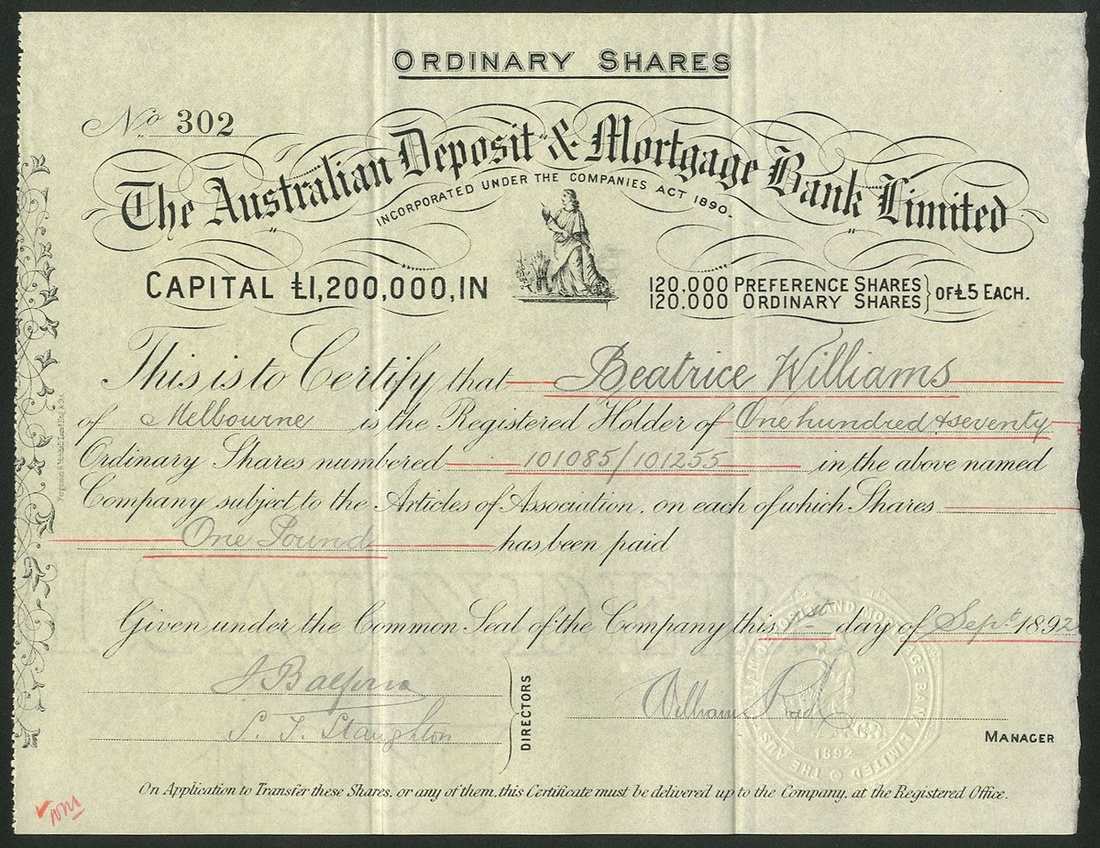 ORDINARY SHARES
No 302
The Australian Deposit & Mortgage Bank Limited
INCORPORATED UNDER THE COMPANIES ACT 1890.
CAPITAL £1,200,000, IN
120.000 PREFERENCE SHARES
120.000 ORDINARY SHARES
OF £5 EACH.
This is to Certify that Beatrice Williams
of Melbourne is the Registered Holder of One hundred & seventy
Ordinary Shares numbered 101085/101255 in the above named
Company subject to the Articles of Association, on each of which Shares
One Pound has been paid
Given under the Common Seal of the Company this day of Sept. 1892
J Balfour
S. T. Staughton
DIRECTORS
William
MANAGER
THE AUSTRALIAN DEPOSIT AND MORTGAGE BANK LIMITED
1892
On Application to Transfer these Shares, or any of them, this Certificate must be delivered up to the Company, at the Registered Office.